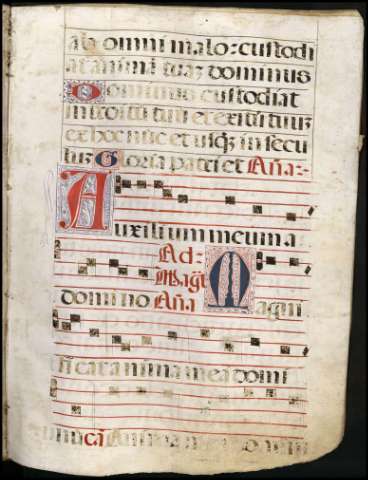 ab omni malo: custodi
at animã tuaz dominus
Dominus custodiat
introitũ tuũ et exitũ tuuz
ex hoc nũc et usqz in secu
luz Gloria patri et Aña:
Auxilium meum a
Ad:
Magñ
domino Aña Magni
ficat anima mea domi
num